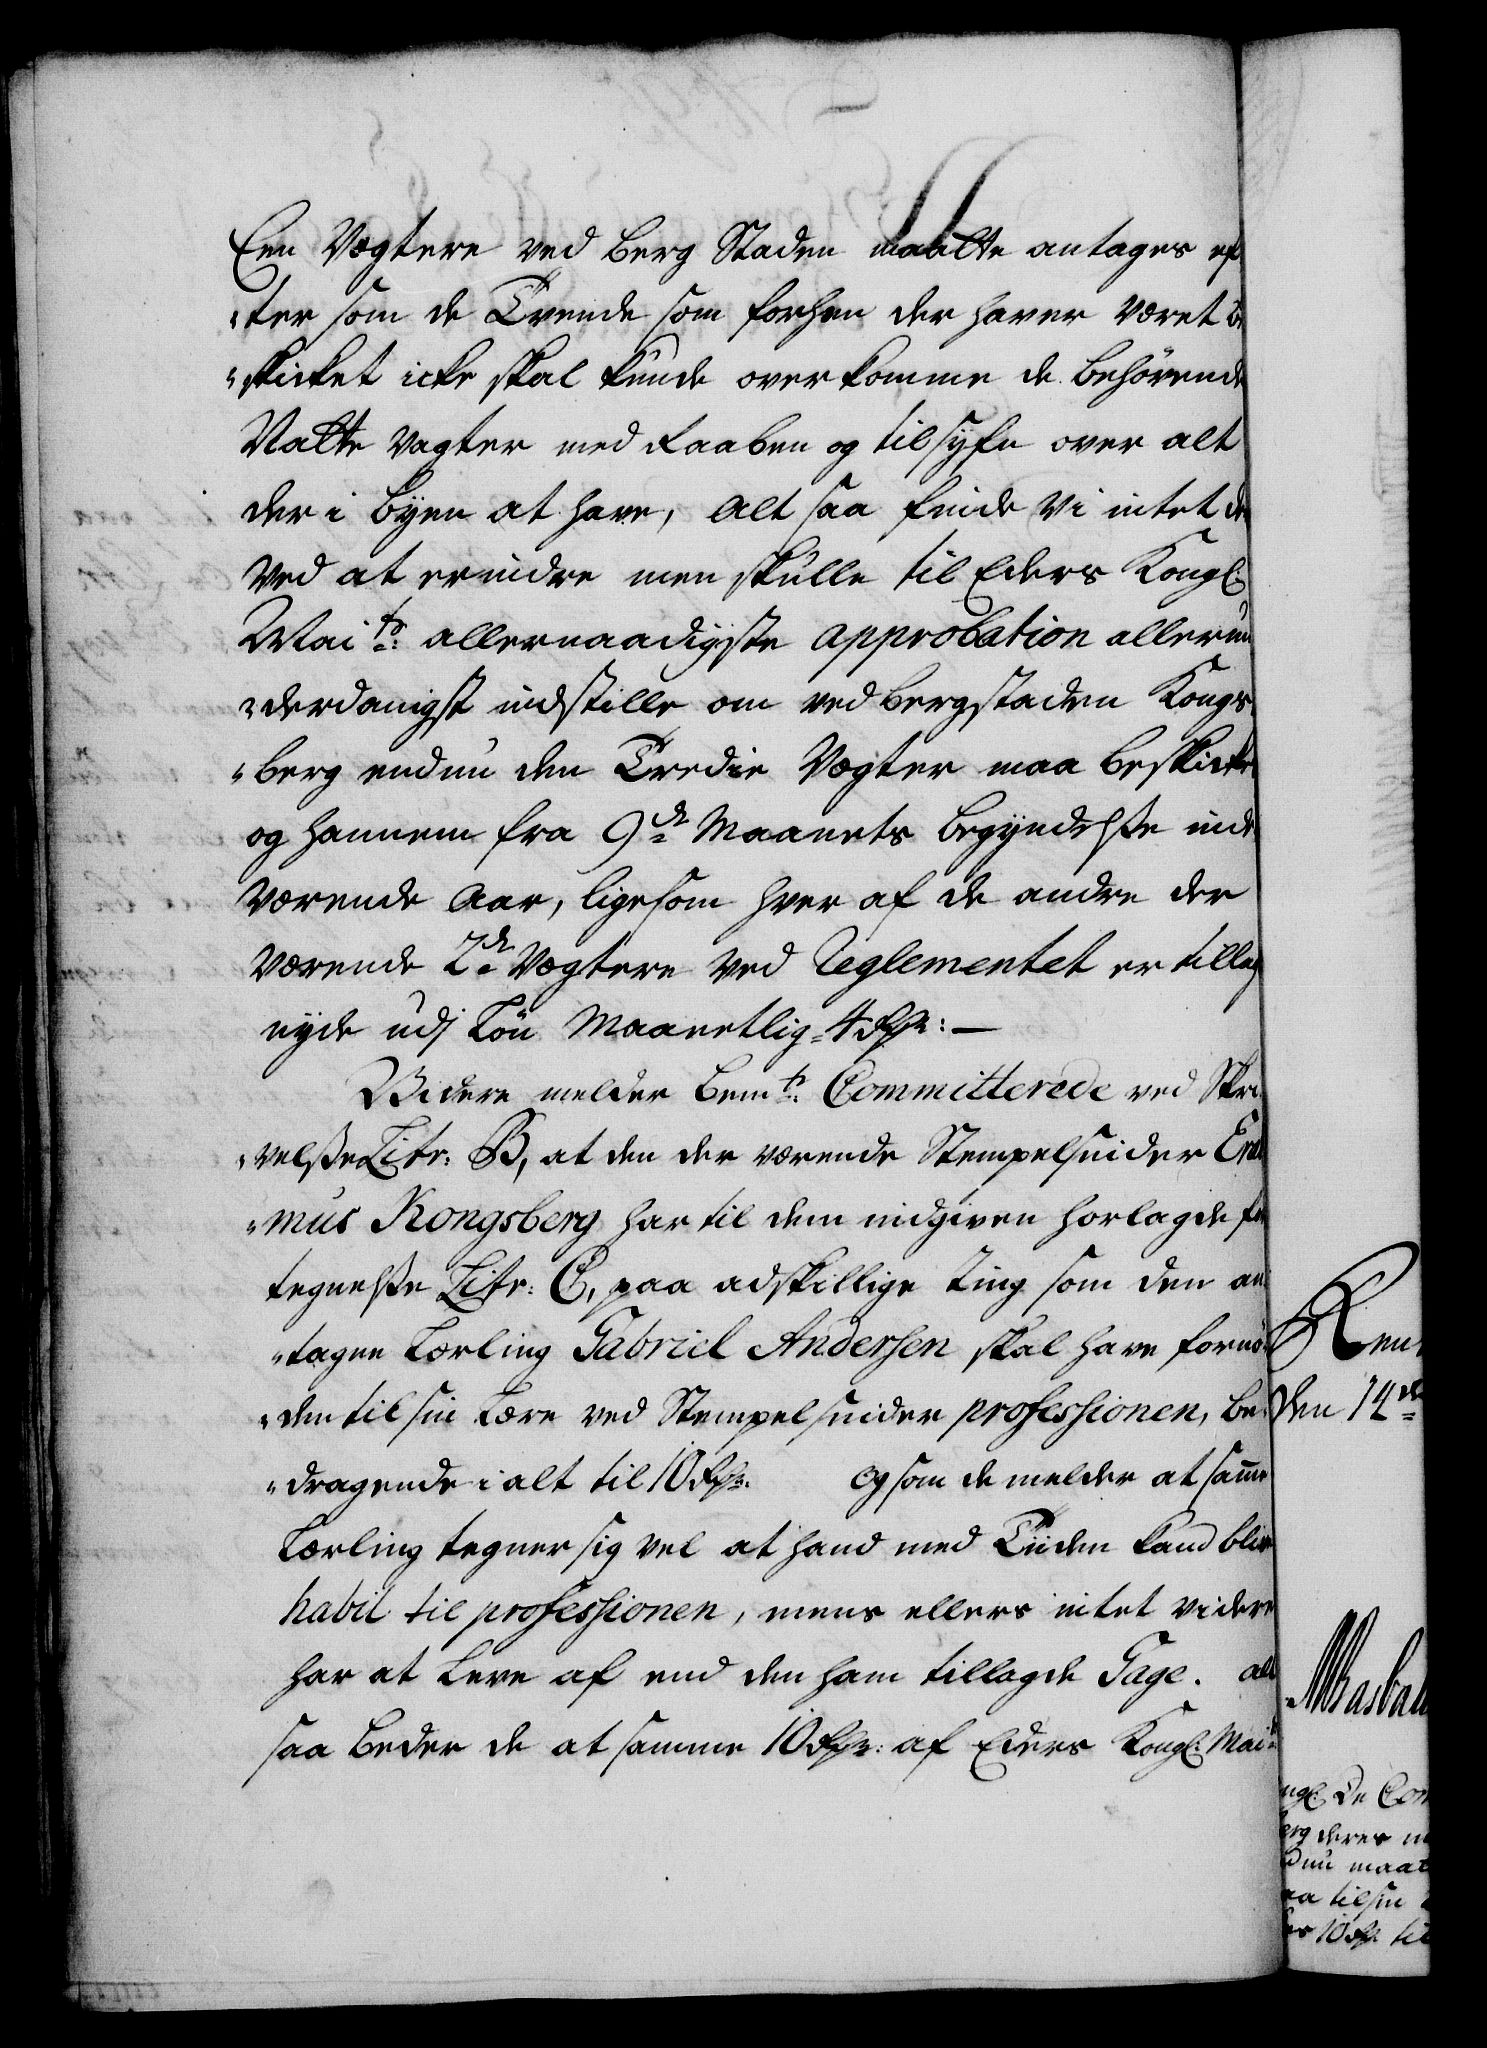 Een Vægtere ved Berg Staden maatte antages ef
"ter som de Tvende som forhen der haver Været be
"skicket icke skal kunde overkomme de behørende
Natte Vagter med Raaben og tilsyfn over alt
der i Byen at have, alt saa finde Vi intet der
Ved at erindre men skulle til Eders Kongl:
Mai:ts allernaadigste approbation allerun
"derdanigst indstille om ved Bergstaden Kongs
"berg endnu den Tredie Vægter maa beskickes
og hannem fra 9de Maanets begyndelsse inde
Værende Aar, ligesom hver af de andre der
Værende 2de Vægtere ved Reglementet er tillagt
nyde udj Løn Maanetlig 4 Rdr:
Videre melder bemte: Committerede ved Skri
"velsse Litr: B, at den der værende Stempelsnider Eras
"mus Kongsberg har til dem indgiven hoslagde for
tegnelsse Litr: C, paa adskillige Ting som den an
"tagne Lærling Gabriel Andersen skal have fornø
"den til sin Lære ved Stempelsnider professionen, be
"dragende i alt til 10 Rdr. og som de melder at samme
Lærling tegner sig vel at hand med Tiiden kand blive
habil til professionen, mens ellers intet videre
har at leve af end den ham tillagde Gage. alt
saa beder de at samme 10 Rdr: af Eders Kongl: Maits
den 14de